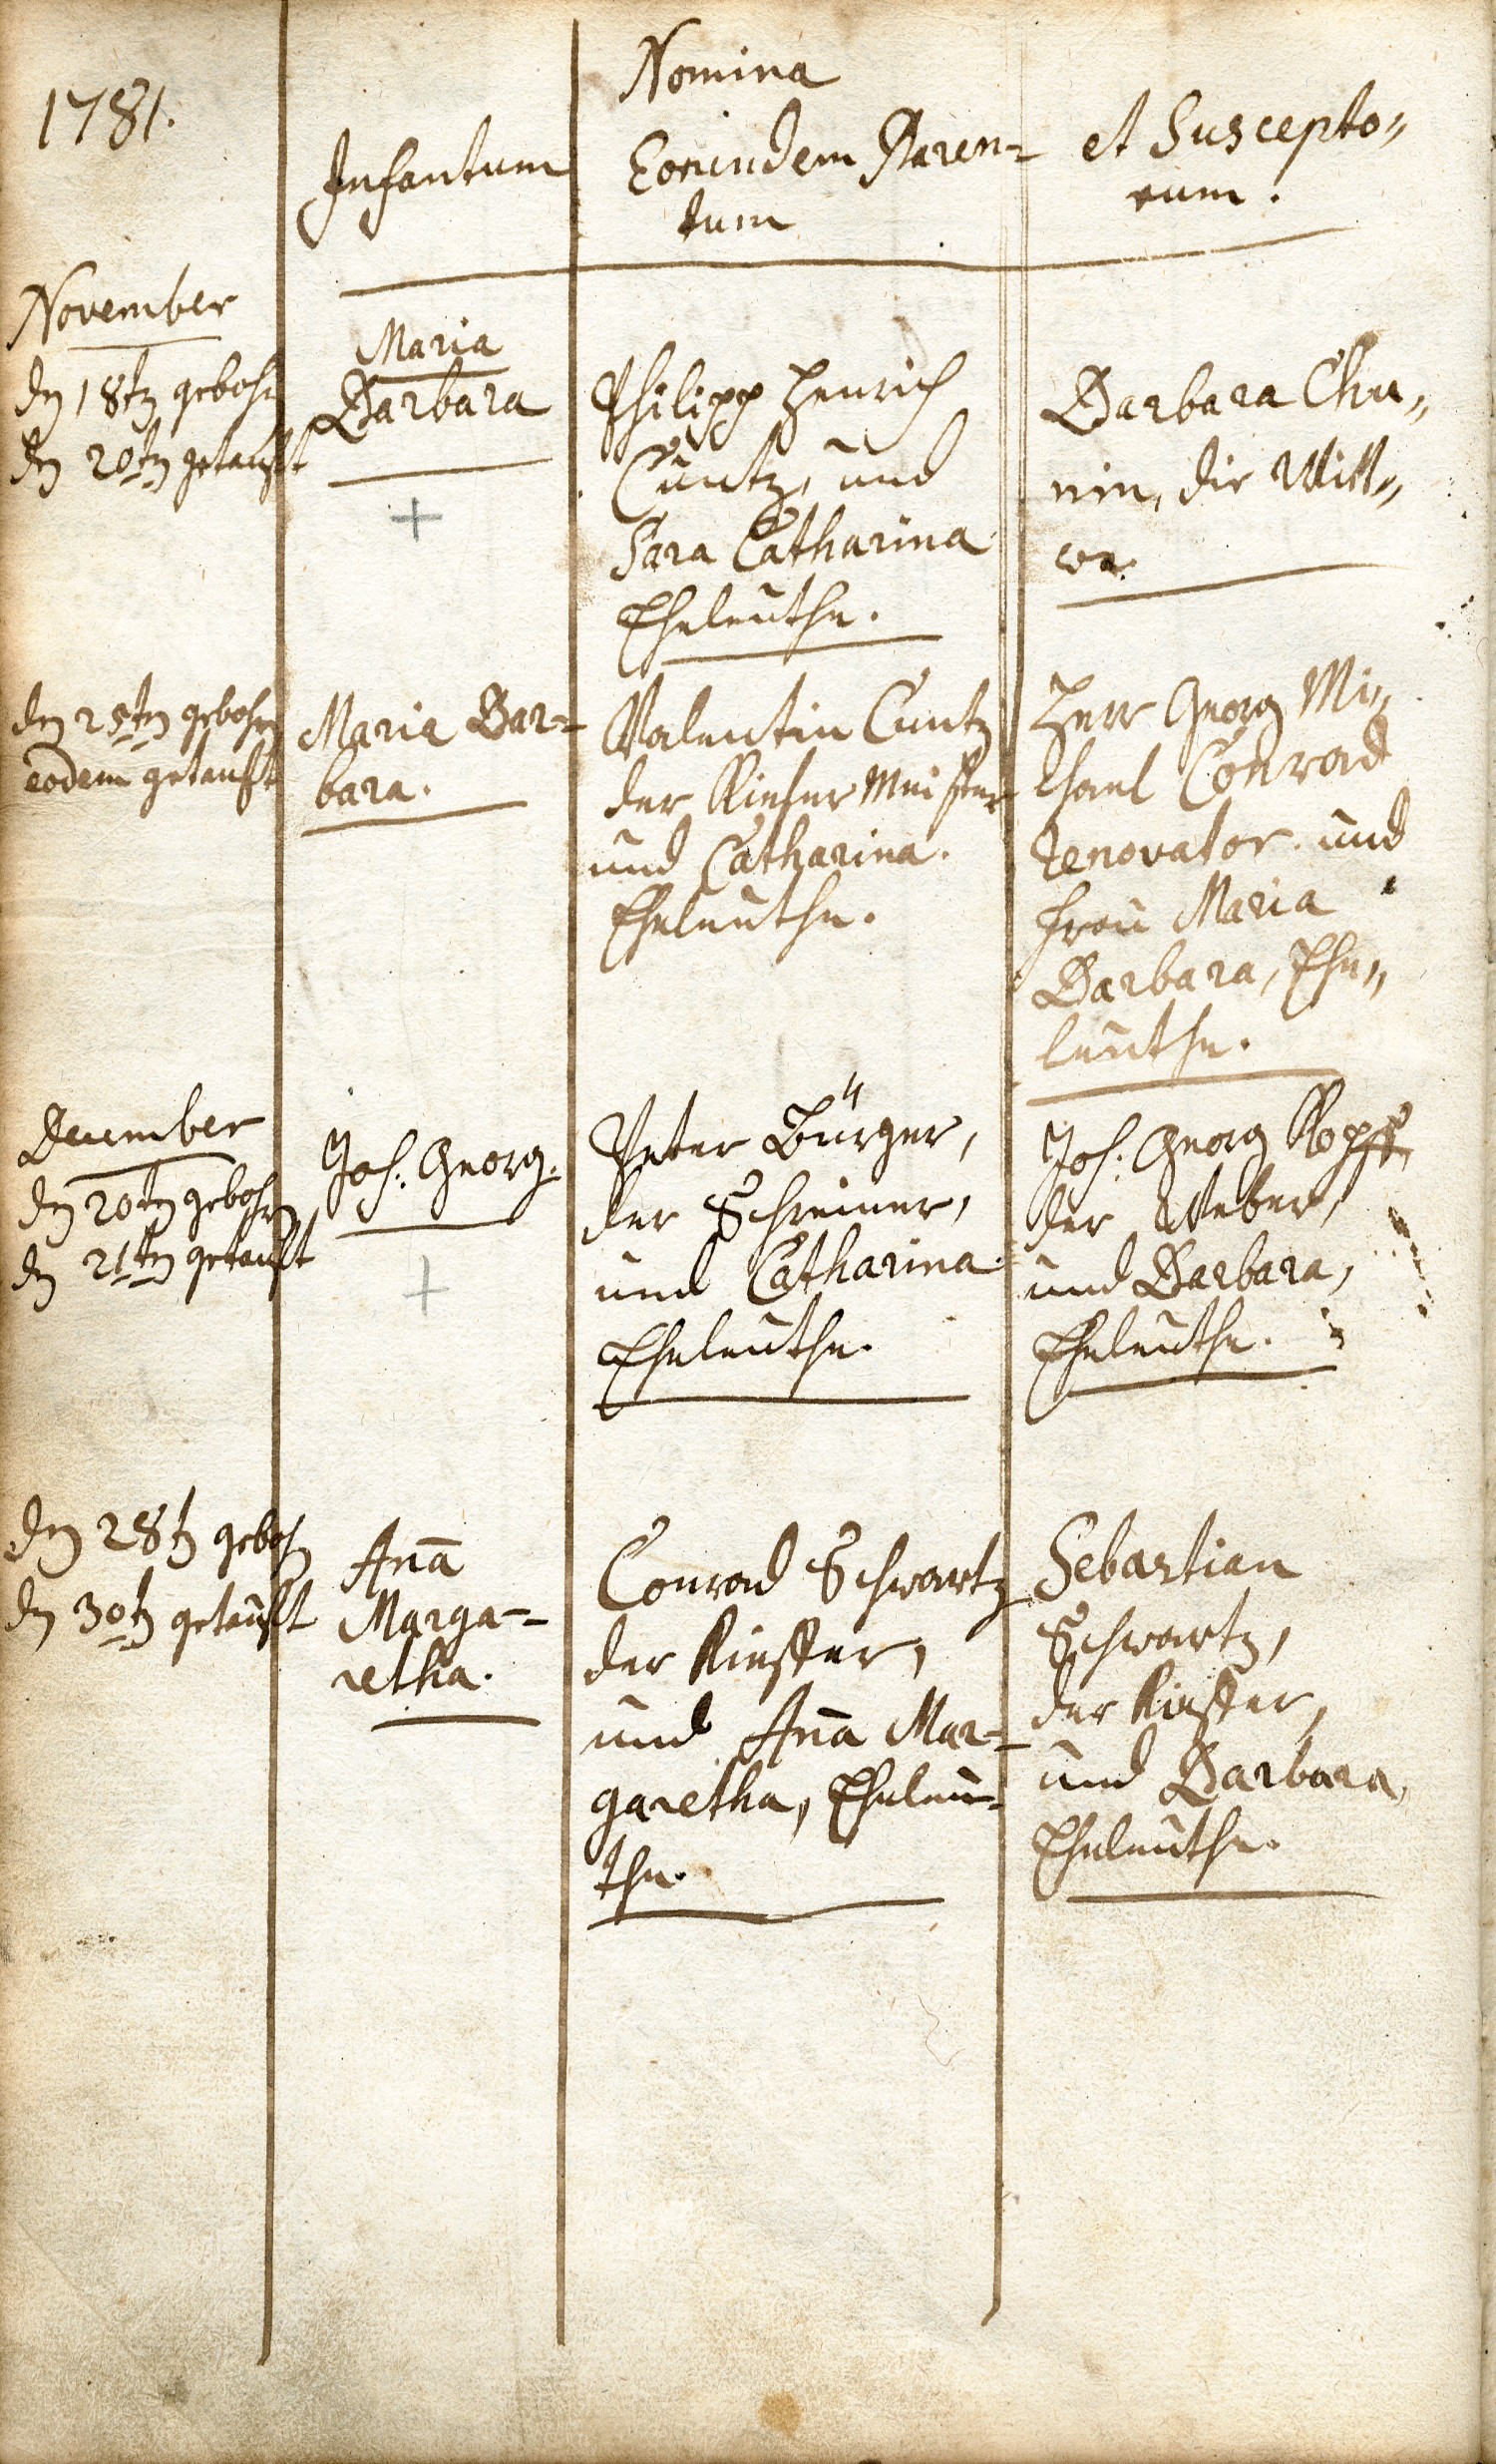 1781.
Infantum
Nomina
Eorundem Paren=
tum
et Suscepto„
rum.
November
den 18tn gebohrn
den 20tn getauft
Maria
Barbara
+
Philipp Henrich
Cuntz, und
Sara Catharina
Eheleuthe.
Barbara
nin, die Witt„
we.
den 25tn gebohrn
eodem getauft
Maria Bar=
bara.
Valentin Cuntz
der Kiefer Meister
und Catharina.
Eheleuthe.
Herr Georg Mi„
chael Conrad
renovator und
Frau Maria
Barbara, Ehe„
leuthe.
December
den 20tn gebohrn
den 21tn getauft
Joh: Georg.
+
Peter Bürger,
der Schreiner,
und Catharina
Eheleuthe.
Joh: Georg Kopff
der Weber,
und Barbara,
Eheleuthe.
den 28tn gebohrn
den 30tn getauft
Anā
Marga=
retha.
Conrad Schwartz
der Kieffer,
und Anā Mar=
garetha, Eheleu=
the.
Sebastian
Schwartz,
der Kieffer,
und Barbara,
Eheleuthe.